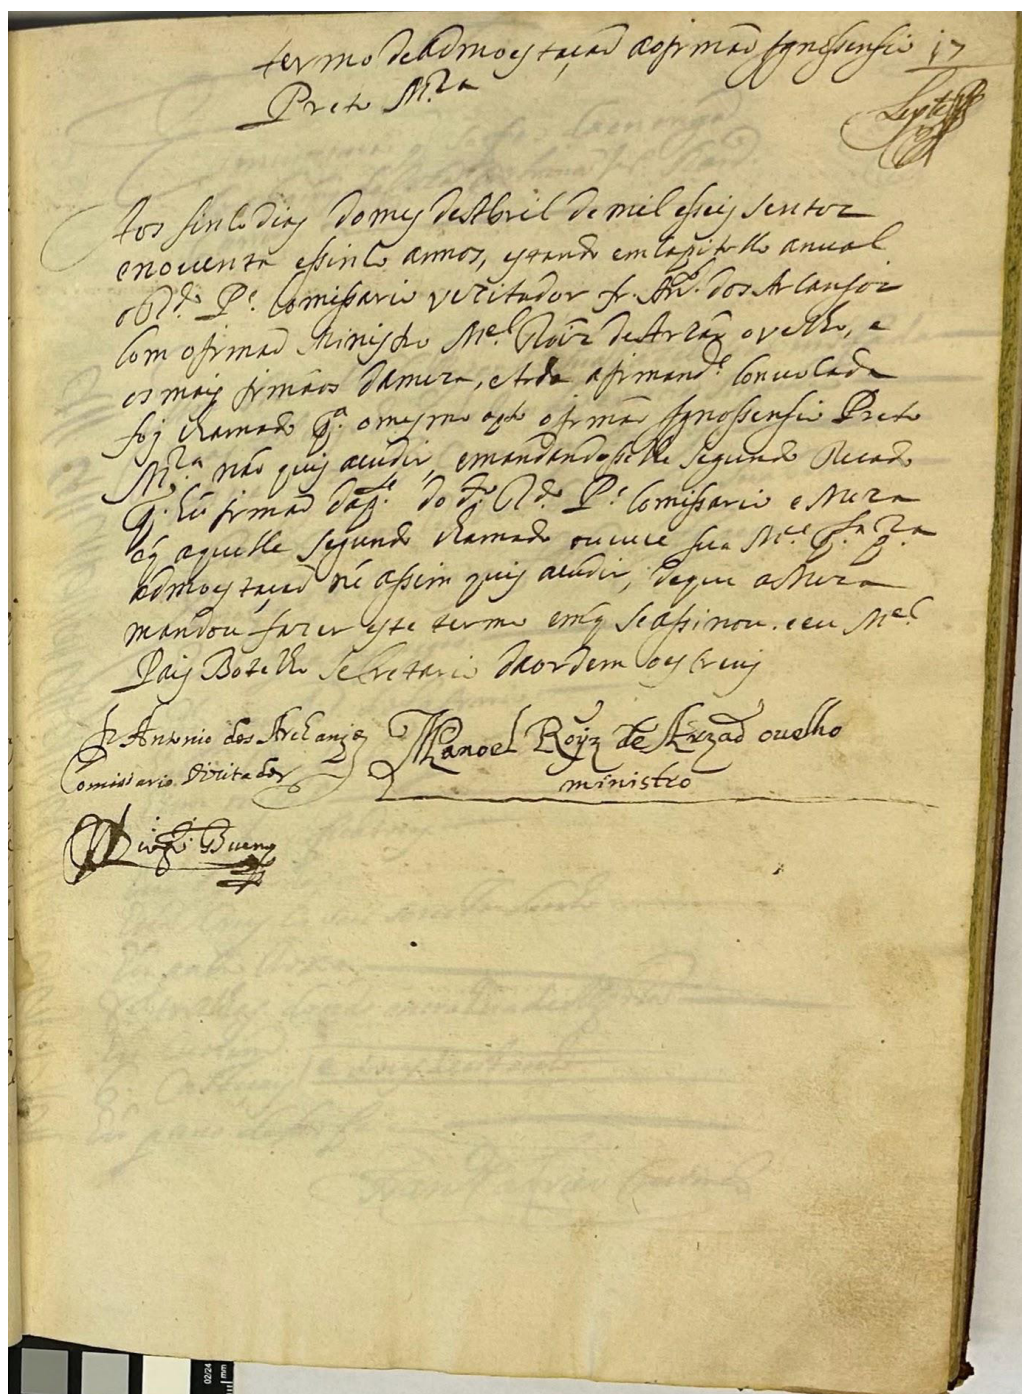 termo de admoestação ao firmão Ignossensio 17
Preto Mr.ª
Aos sinco dias do mes de Abril de mil e seis sentos
e nouenta e sinco annos, estando em Capitollo anual
o R.do P.e Comissario vezitador fr. An.to dos Arcanjos
Com o firmão Ministro M.el Roiz de Arzão o velho, e
os mais firmãos da meza, e toda a firmand.e Conuocada
foj chamado p.ª o mesmo o firmão Ignossensio Preto
Mr.ª não quis acudir, e mandandosse lhe segundo Recado
p. hũ firmão da p.te do d.º R.do P.e Comissario e Meza
aquelle segundo chamado sua M.ce
admoestação nẽ assim quis acudir, de que a Meza
mandou fazer este termo em q se assinou. e eu M.el
Pais Botelho secretario da ordem o escreuj
fr Antonio dos Archanjos Manoel Royz de Arzaõ ouelho
Comissario Vizitador ministro
Bueno